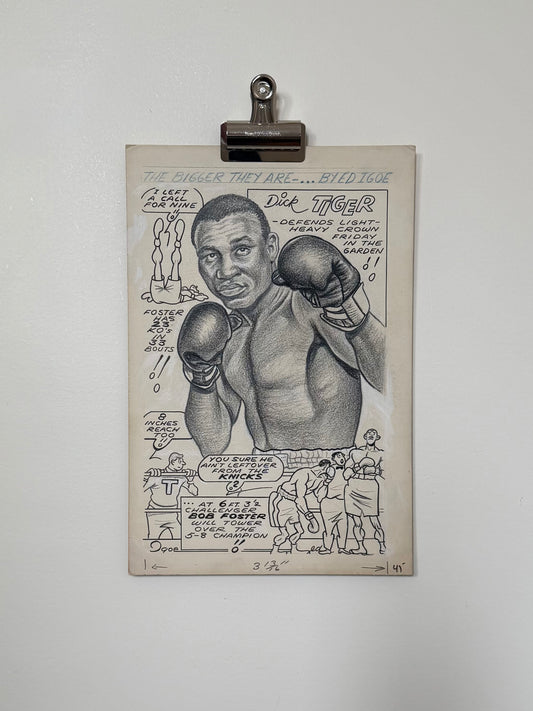 THE BIGGER THEY ARE-... BY ED IGOE
I LEFT
A CALL
FOR NINE
Dick TIGER
-DEFENDS LIGHT-
HEAVY CROWN
FRIDAY
IN THE
GARDEN
!!
FOSTER
HAS
23
KO's
IN
33
BOUTS
!!
8
INCHES
REACH
TOO
T
YOU SURE HE
AIN'T LEFTOVER
FROM THE
KNICKS
?
... AT 6 FT. 3½
CHALLENGER
BOB FOSTER
WILL TOWER
OVER THE
5-8 CHAMPION
!!
Igoe
ed
3 13/16"
45